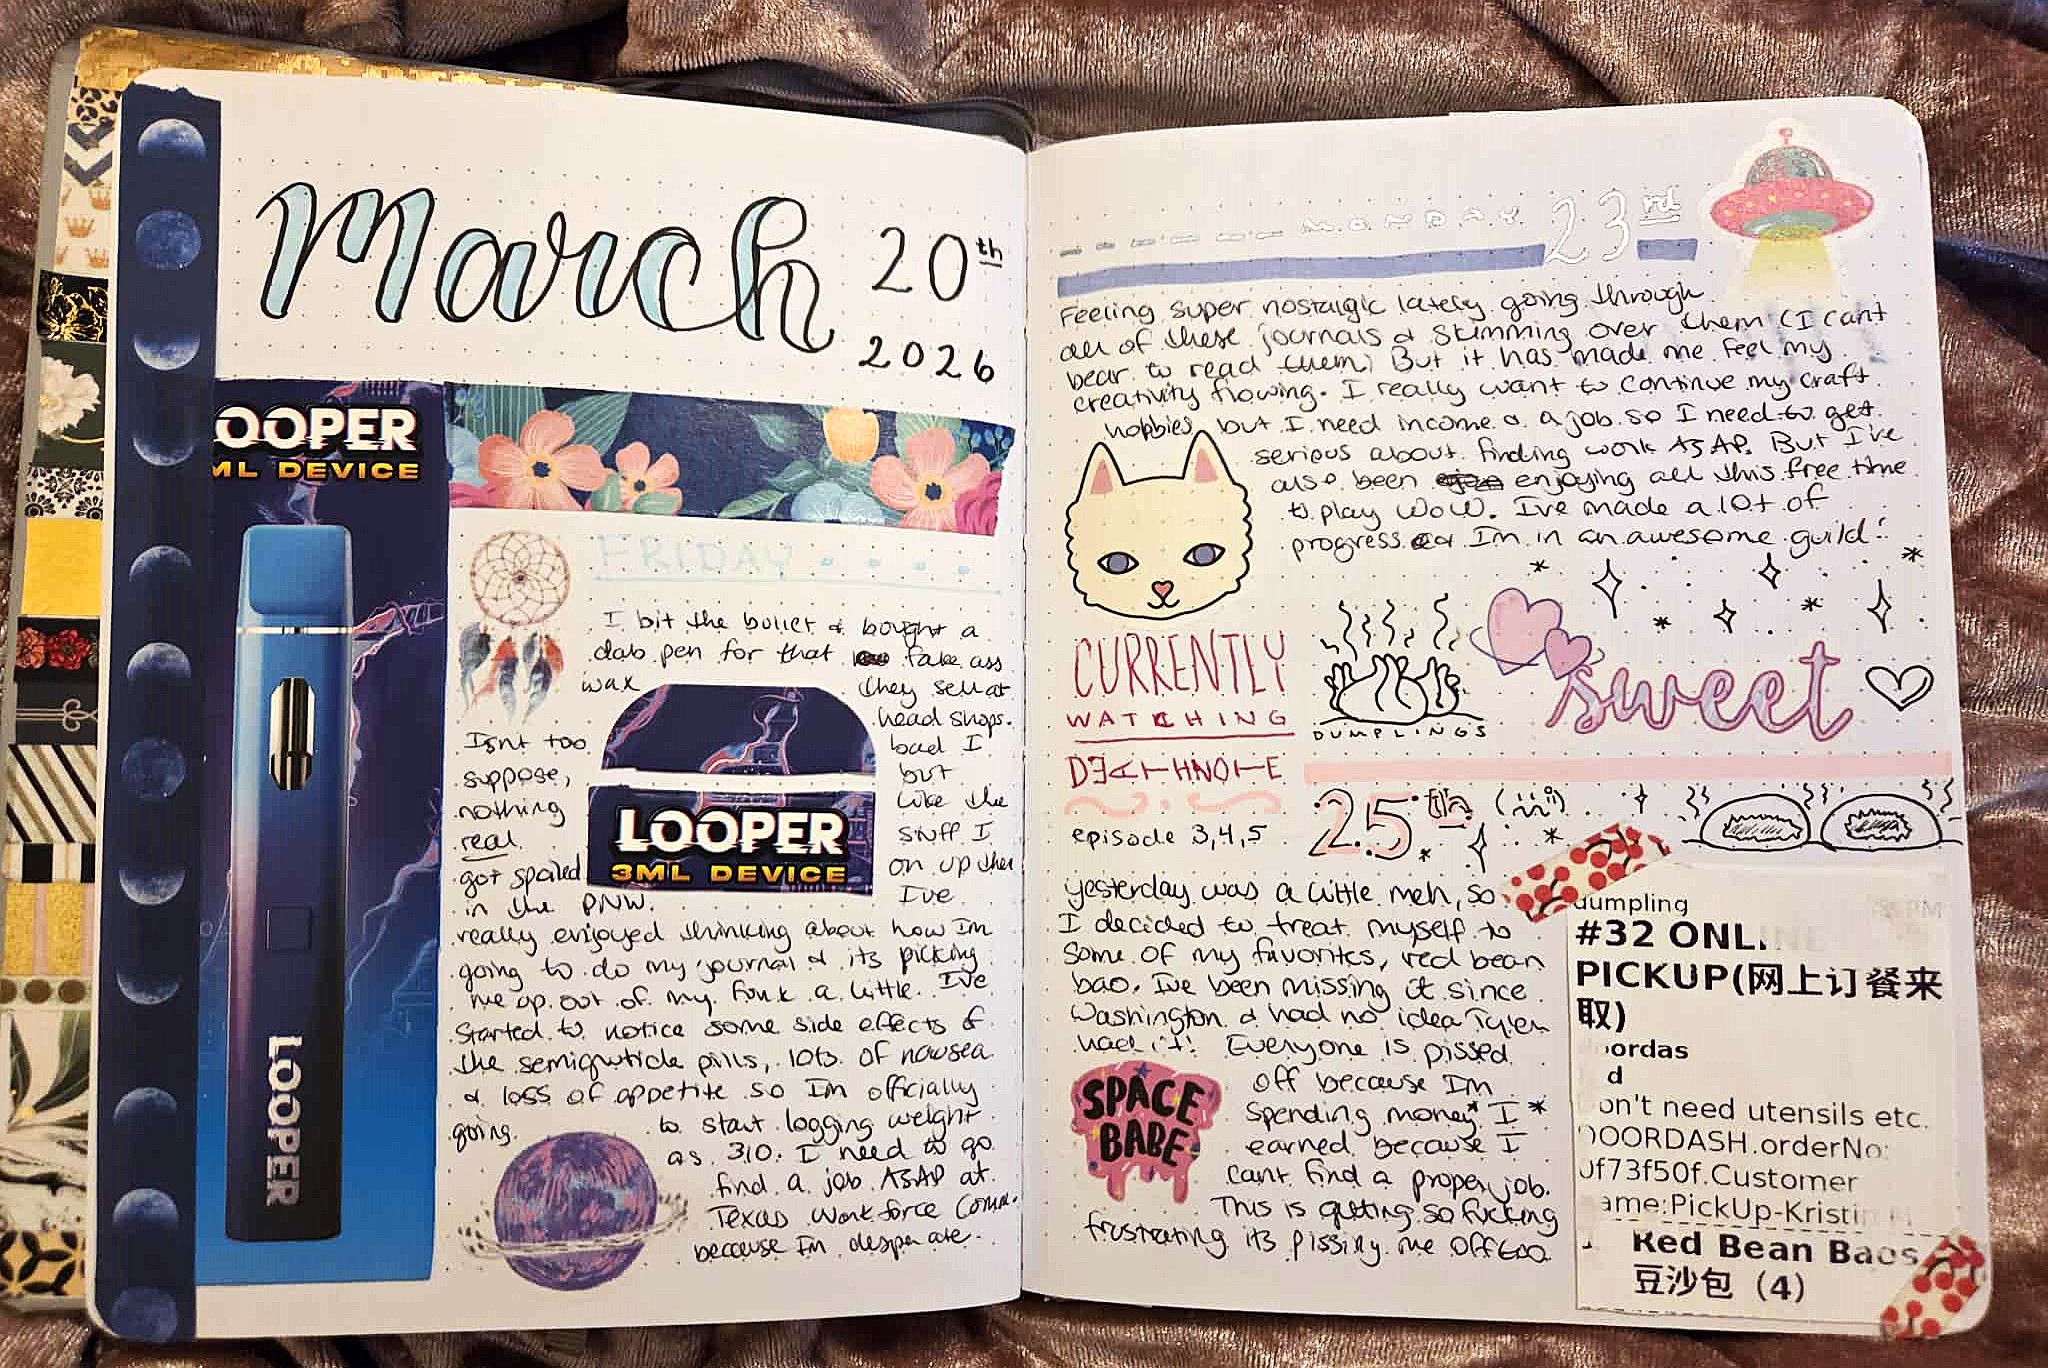 March 20th
2026
LOOPER
ML DEVICE
LOOPER
FRIDAY
I bit the bullet & bought a
dab pen for that fake ass
wax they sell at
head shops.
Isnt too bad I
suppose, but
nothing like the
real stuff I
got spoiled on up ther
in the PNW. I've
really enjoyed thinking about how Im
going to do my journal & its picking
me up out of my funk a little. I've
started to notice some side effects of
the semiglutide pills, lots of nausea
& loss of appetite so Im officially
going to start logging weight
as 310. I need to go
find a job ASAP at
Texas Workforce Comm.
because Im desperate.
LOOPER
3ML DEVICE
MONDAY 23rd
Feeling super nostalgic lately going through
all of these journals & skimming over them (I cant
bear to read them) But it has made me feel my
creativity flowing. I really want to continue my craft
hobbies, but I need income & a job so I need to get
serious about finding work ASAP. But I've
also been enjoying all this free time
to play WoW. Ive made a lot of
progress & Im in an awesome guild!
CURRENTLY
WATCHING
DEATHNOTE
episode 3,4,5
DUMPLINGS
sweet
25th
yesterday was a little meh, so
I decided to treat myself to
some of my favorites, red bean
bao. Ive been missing it since
Washington & had no idea Tyler
had it! Everyone is pissed
off because Im
spending money* I *
earned because I
cant find a proper job.
This is getting so fucking
frustrating its pissing me off too.
SPACE
BABE
dumpling
#32 ONLINE
PICKUP(网上订餐来
取)
ordas
d
on't need utensils etc.
DOORDASH.orderNo:
0f73f50f.Customer
ame:PickUp-Kristin
Red Bean Baos
豆沙包 (4)